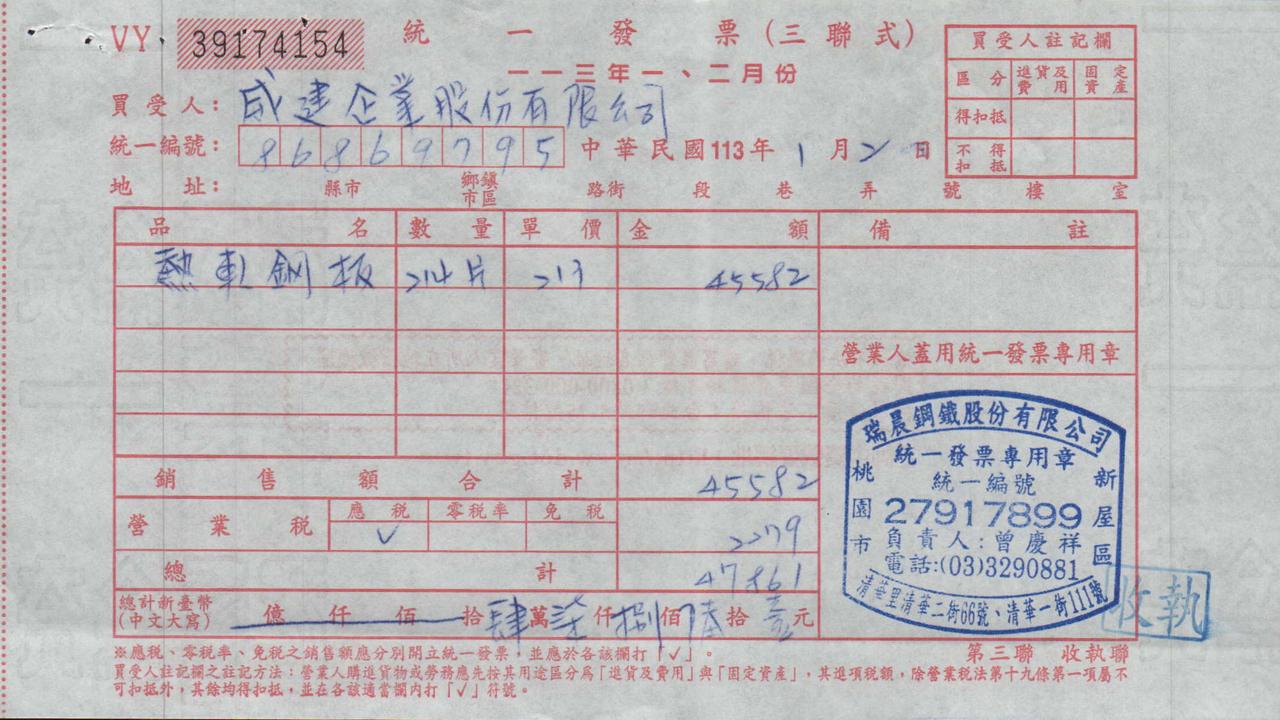 VY 39174154 統一發票(三聯式)
一一三年一、二月份
買受人註記欄
區分 進貨及費用 固定資產
得扣抵
不得扣抵
買受人: 成建企業股份有限公司
統一編號: 86869795 中華民國113年1月2日
地址: 縣市 鄉鎮市區 路街 段 巷 弄 號 樓 室
品名 數量 單價 金額 備註
熱軋鋼板 214片 213 45582
營業人蓋用統一發票專用章
銷售額合計 45582
營業稅 應稅 零稅率 免稅
✓ 2279
總計 47861
總計新臺幣(中文大寫) 億仟佰拾肆萬柒仟捌佰陸拾壹元
瑞晨鋼鐵股份有限公司
統一發票專用章
統一編號
27917899
負責人:曾慶祥
電話:(03)3290881
桃園市 新屋區
清華里清華二街66號、清華一街111號
收執
※應稅、零稅率、免稅之銷售額應分別開立統一發票,並應於各該欄打「✓」。
第三聯 收執聯
買受人註記欄之註記方法:營業人購進貨物或勞務應先按其用途區分為「進貨及費用」與「固定資產」,其進項稅額,除營業稅法第十九條第一項屬不
可扣抵外,其餘均得扣抵,並在各該適當欄內打「✓」符號。